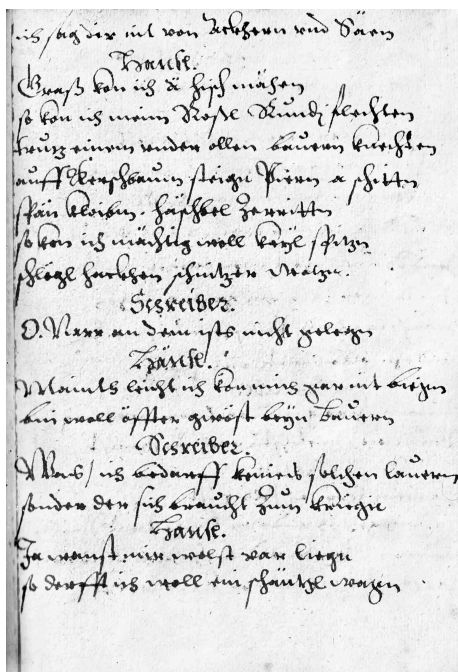 ich sag dir nit von Ackhern vnd Säen
Hänsl.
Graß kon ich ä hisch mähen
so kon ich meim Rößl Rundj flechten
truz einem vnder ollen bauern knechten
auff Kerschbaum steign Piern ä schittn
spän kloibm. häschbel Zerrittn
so kon ich mächtig woll keyl spizn
schlegl hackhen schnitzer
Schreiber.
O. Narr an dem ists nicht gelegn
Hänsl.
Mainth leicht ich kon mich gar nit biegn
bin woll öffter gwöst beyn bauern
Schreiber.
Was / ich bedarff keines solchen lauern
sonder der sich braucht Zum kriegn
Hänsl.
Ja wanst mir wolst var liegn
so derfft ich woll ein schäntzl wagn